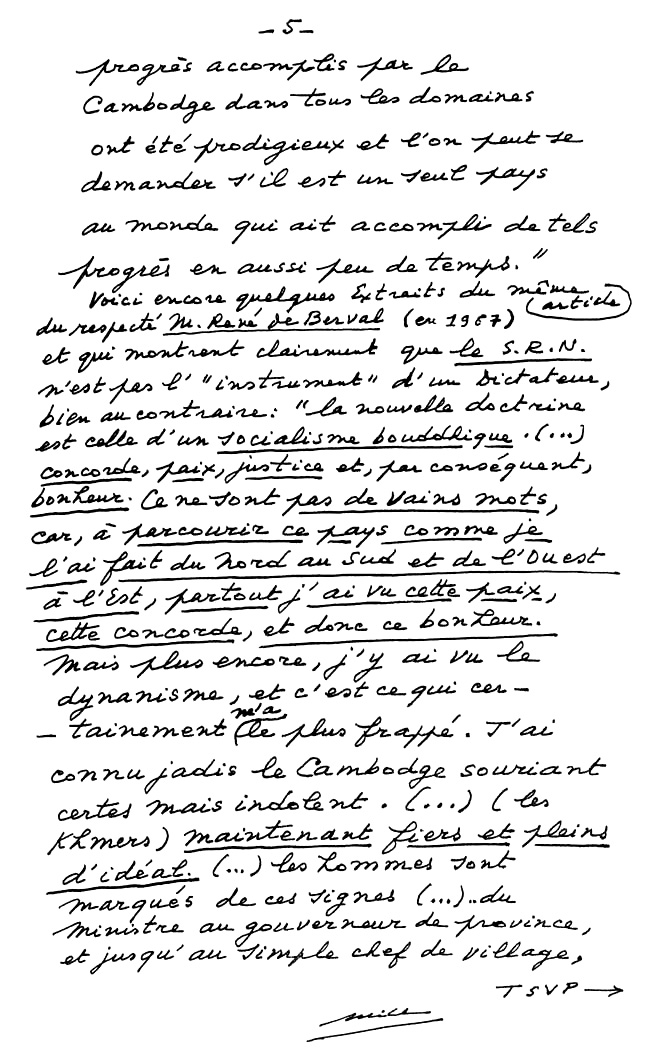 -5-
progrès accomplis par le
Cambodge dans tous les domaines
ont été prodigieux et l'on peut se
demander s'il est un seul pays
au monde qui ait accompli de tels
progrès en aussi peu de temps."
Voici encore quelques Extraits du même article
du respecté M. René de Berval (en 1967)
et qui montrent clairement que le S.R.N.
n'est pas l' "instrument" d'un Dictateur,
bien au contraire : "la nouvelle doctrine
est celle d'un socialisme bouddhique. (...)
concorde, paix, justice et, par conséquent,
bonheur. Ce ne sont pas de vains mots,
car, à parcourir ce pays comme je
l'ai fait du Nord au Sud et de l'Ouest
à l'Est, partout j'ai vu cette paix,
cette concorde, et donc ce bonheur.
Mais plus encore, j'y ai vu le
dynanisme, et c'est ce qui cer-
-tainement m'a le plus frappé. J'ai
connu jadis le Cambodge souriant
certes mais indolent. (...) (les
Khmers) maintenant fiers et pleins
d'idéal. (...) les hommes sont
marqués de ces signes (...).. du
Ministre au gouverneur de province,
et jusqu'au simple chef de village,
TSVP →